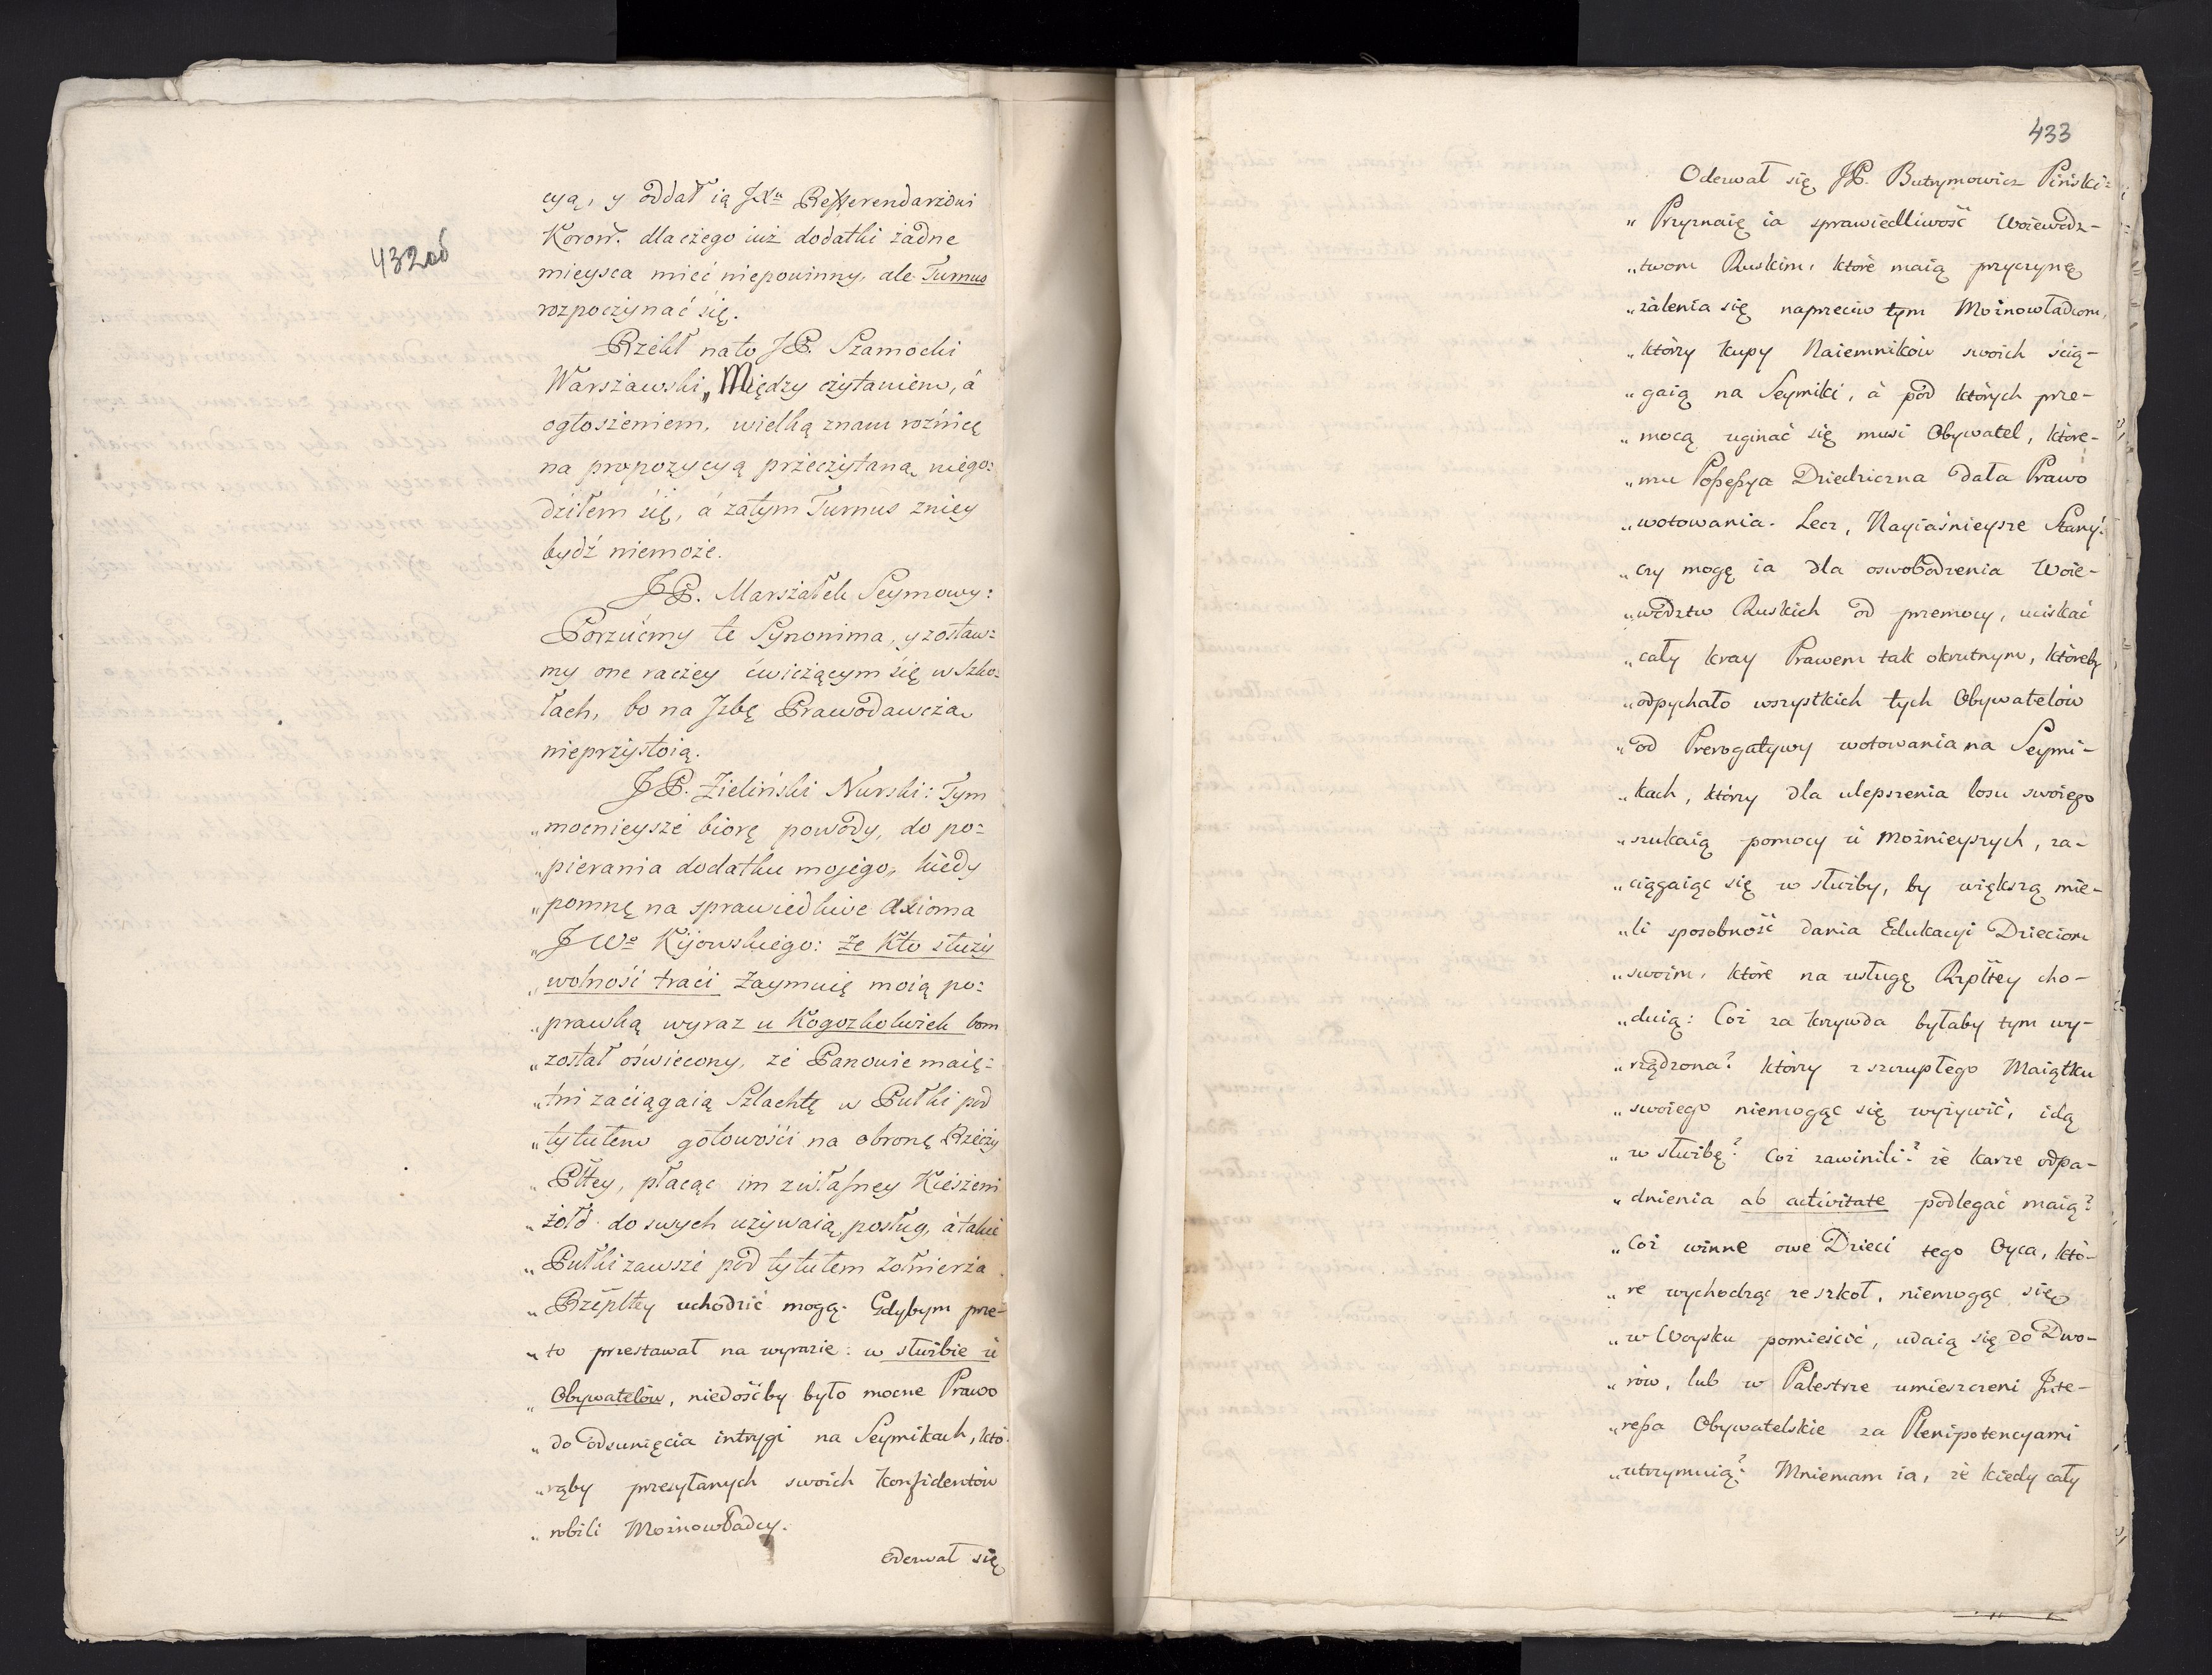 432 об
cyą, y oddał ią JXu Referendarzowi
Koron. dla czego iuż dodatki żadne
mieysca mieć niepowinny, ale Turnus
rozpoczynać się.
Rzekł na to JP. Szamocki
Warszawski „Między czytaniem, á
ogłoszeniem, wielką znam rożnicę
na propozycyą przeczytaną niego=
dziłem się, á zatym Turnus zniey
bydź niemoże.
JP. Marszałek Seymowy:
Porzućmy te Synonima, y zostaw=
my one raczey ćwiczącym się w Szko=
łach, bo na Jzbę Prawodawczą
nieprzystoią.
JP. Zieliński Nurski: Tym
„mocnieysze biorę powody, do po=
„pierania dodatku mojego, kiedy
„pomnę na sprawiedliwe axioma
„JWo Kijowskiego: że Kto służy
„wolność traci Zaymuię moią po=
„prawką wyraz u Kogożkolwiek bom
„został oświecony, że Panowie maię=
„tni zaciągaią Szlachtę w Pułki pod
„tytułem gotowości na obronę Rzeczy
„Płtey, płacąc im zwłasney Kieszeni
„żołd do swych używaią posług, á takie
„Pułki zawsze pod tytułem Zołnierza
„Rzepltey uchodzić mogą. Gdybym prze-
„to przestawał na wyrazie: w służbie ú
„Obywatelów, niedośćby było mocne Prawo
„do odsunięcia intrygi na Seymikach, któ-
„rąby przesyłanych swoich Konfidentów
„robili Możnowładcy.
Oderwał się
433
Oderwał się JP. Butrymowicz Piński:
„Przyznaię ia sprawiedliwość Woiewódz-
„twom Ruskim, które maią przyczynę
„żalenia się naprzeciw tym Możnowładcom,
„którzy kupy Naiemników swoich ścią-
„gaią na Seymiki, á pod których prze-
„mocą uginać się musi Obywatel, które-
„mu Possessya Dziedziczna dała Prawo
„wotowania. Lecz, Nayiaśnieysze Stany!
„czy mogę ia dla oswobodzenia Woie-
„wództw Ruskich od przemocy, uciskać
„cały kray Prawem tak okrutnym, któreby
„odpychało wszystkich tych Obywatelów
„od Prerogatywy wotowania na Seymi-
„kach, którzy dla ulepszenia losu swoiego
„szukaią pomocy ú możnieyszych, za-
„ciągaiąc się w służby, by większą mie-
„li sposobność dania Edukacyi Dzieciom
„swoim, które na usługę Rzpltey cho-
„duią: Coż za krzywda byłaby tym wy-
„rządzona? którzy z szczupłego Maiątku
„swoiego niemogąc się wyżywić, idą
„w służbę? Coż zawinili? że karze odpa-
„dnienia ab activitate podlegać maią?
„Coż winne owe Dzieci tego Oyca, któ-
„re wychodząc ze szkoł, niemogąc się
„w Woysku pomieścić, udaią się do Dwo-
„rów, lub w Palestrze umieszczeni Jnte-
„ressa Obywatelskie za Plenipotencyami
„utrzymuią? Mniemam ia, że kiedy cały